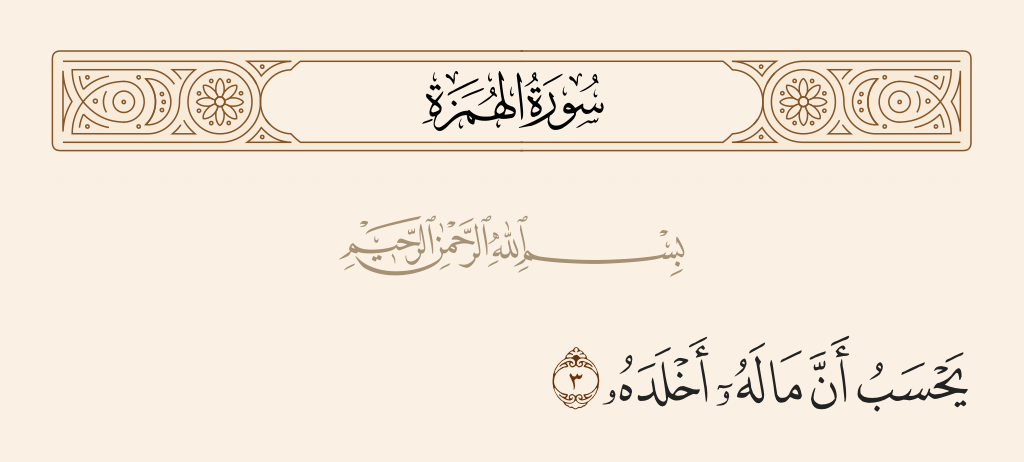 سُورَةُ الْهُمَزَةِ
بِسْمِ ٱللَّهِ ٱلرَّحْمَٰنِ ٱلرَّحِيمِ
يَحْسَبُ أَنَّ مَالَهُۥٓ أَخْلَدَهُۥ ٣